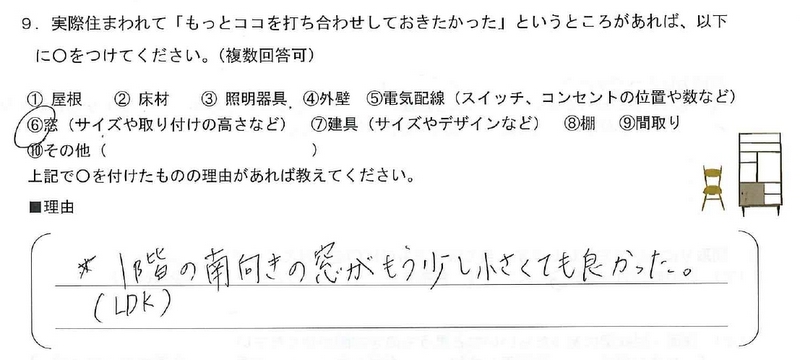 9．実際住まわれて「もっとココを打ち合わせしておきたかった」というところがあれば、以下
に〇をつけてください。（複数回答可）
① 屋根　② 床材　③ 照明器具　④外壁　⑤電気配線（スイッチ、コンセントの位置や数など）
⑥窓（サイズや取り付けの高さなど）　⑦建具（サイズやデザインなど）　⑧棚　⑨間取り
⑩その他（　　　　　　　　　　　　）
上記で〇を付けたものの理由があれば教えてください。
■理由
＊1階の南向きの窓がもう少し小さくても良かった。
(LDK)